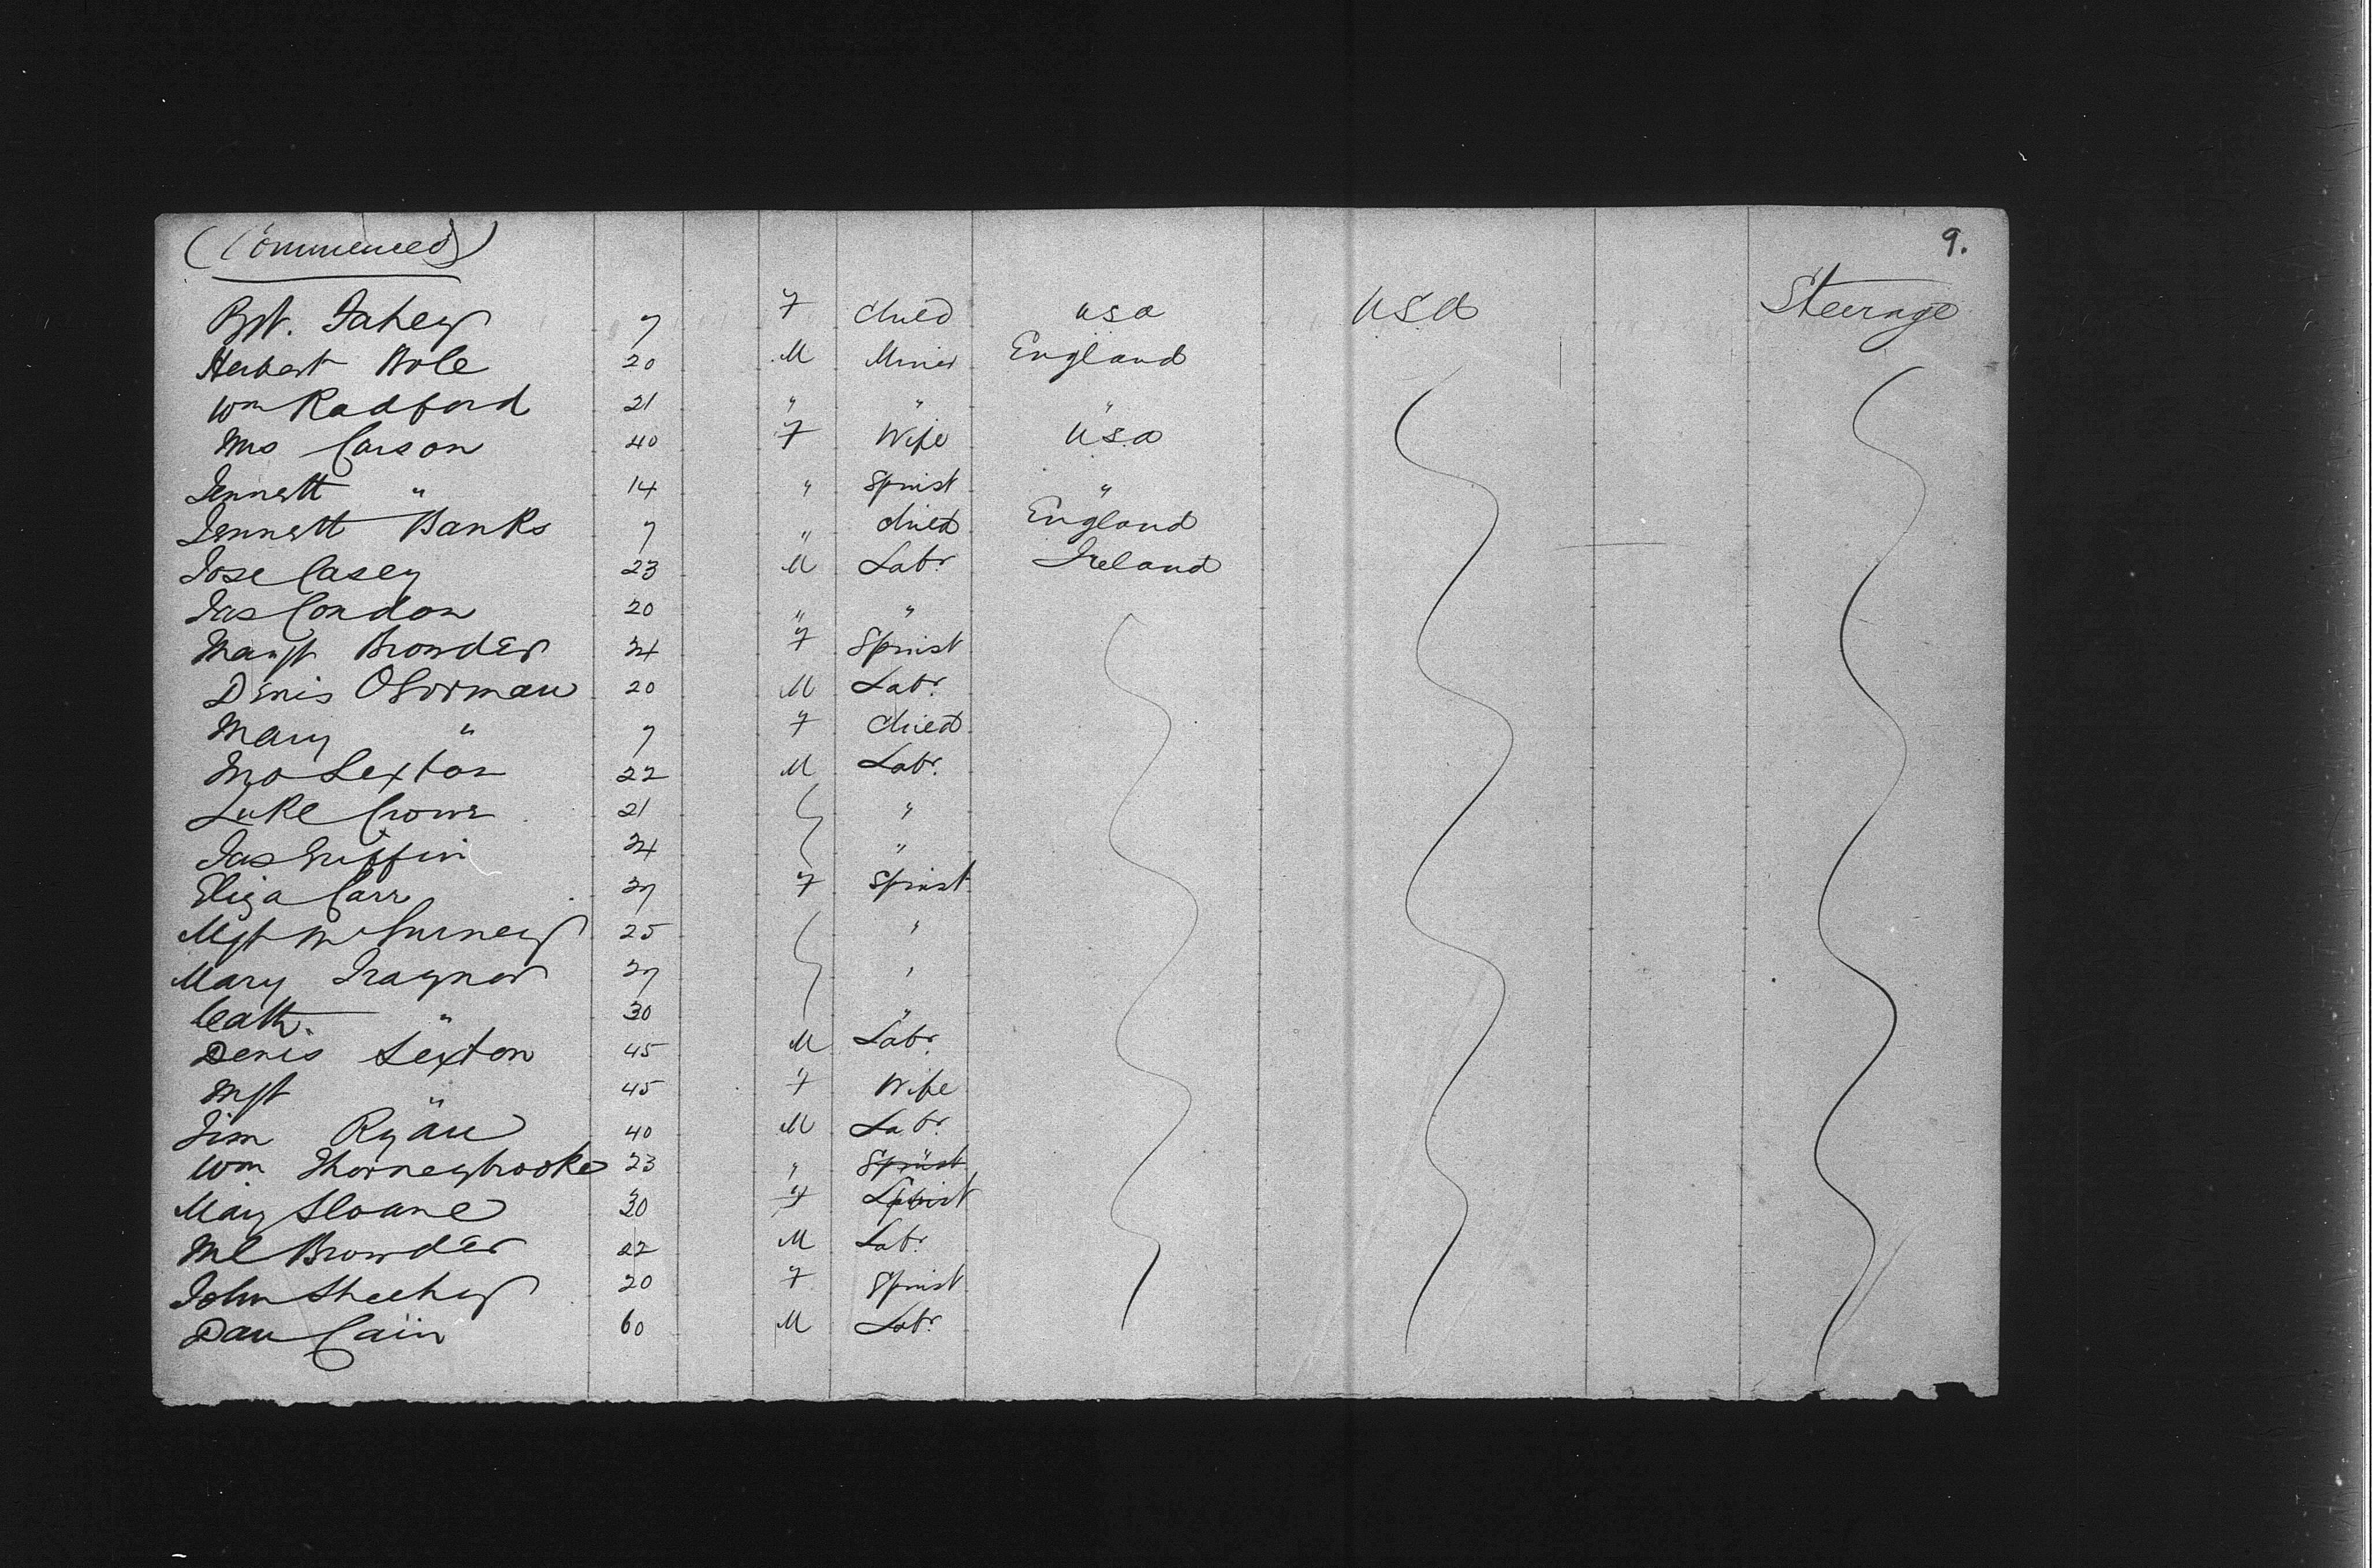 (Commenced) 9.
Bgt. Fahey 7 F Child USA USA Steerage
Herbert Bole 20 M Miner England
Wm Radford 21 " " "
Mrs Carson 40 F Wife USA
Jennett " 14 " Spinst "
Jennett Banks 7 " Child England
Jose Casey 23 M Labr Ireland
Jas Condon 20 " "
Margt Browder 24 F Spinst
Denis OGorman 20 M Labr.
Mary " 7 F Child
Jno Sexton 22 M Labr.
Luke Crowe 21 "
Jas Griffin 24 "
Eliza Carr 27 F Spinst
Mgt Mc 25 "
Mary Traynor 27 "
Cath. " 30 "
Denis Sexton 45 M Labr.
Mgt " 45 F Wife
Jim Ryan 40 M Labr.
Wm. Thorneybrooke 23 " Spinst
May Sloane 30 F Spinst
Ml Browder 22 M Labr.
John Sheehy 20 F Spinst
Dan Cain 60 M Labr.